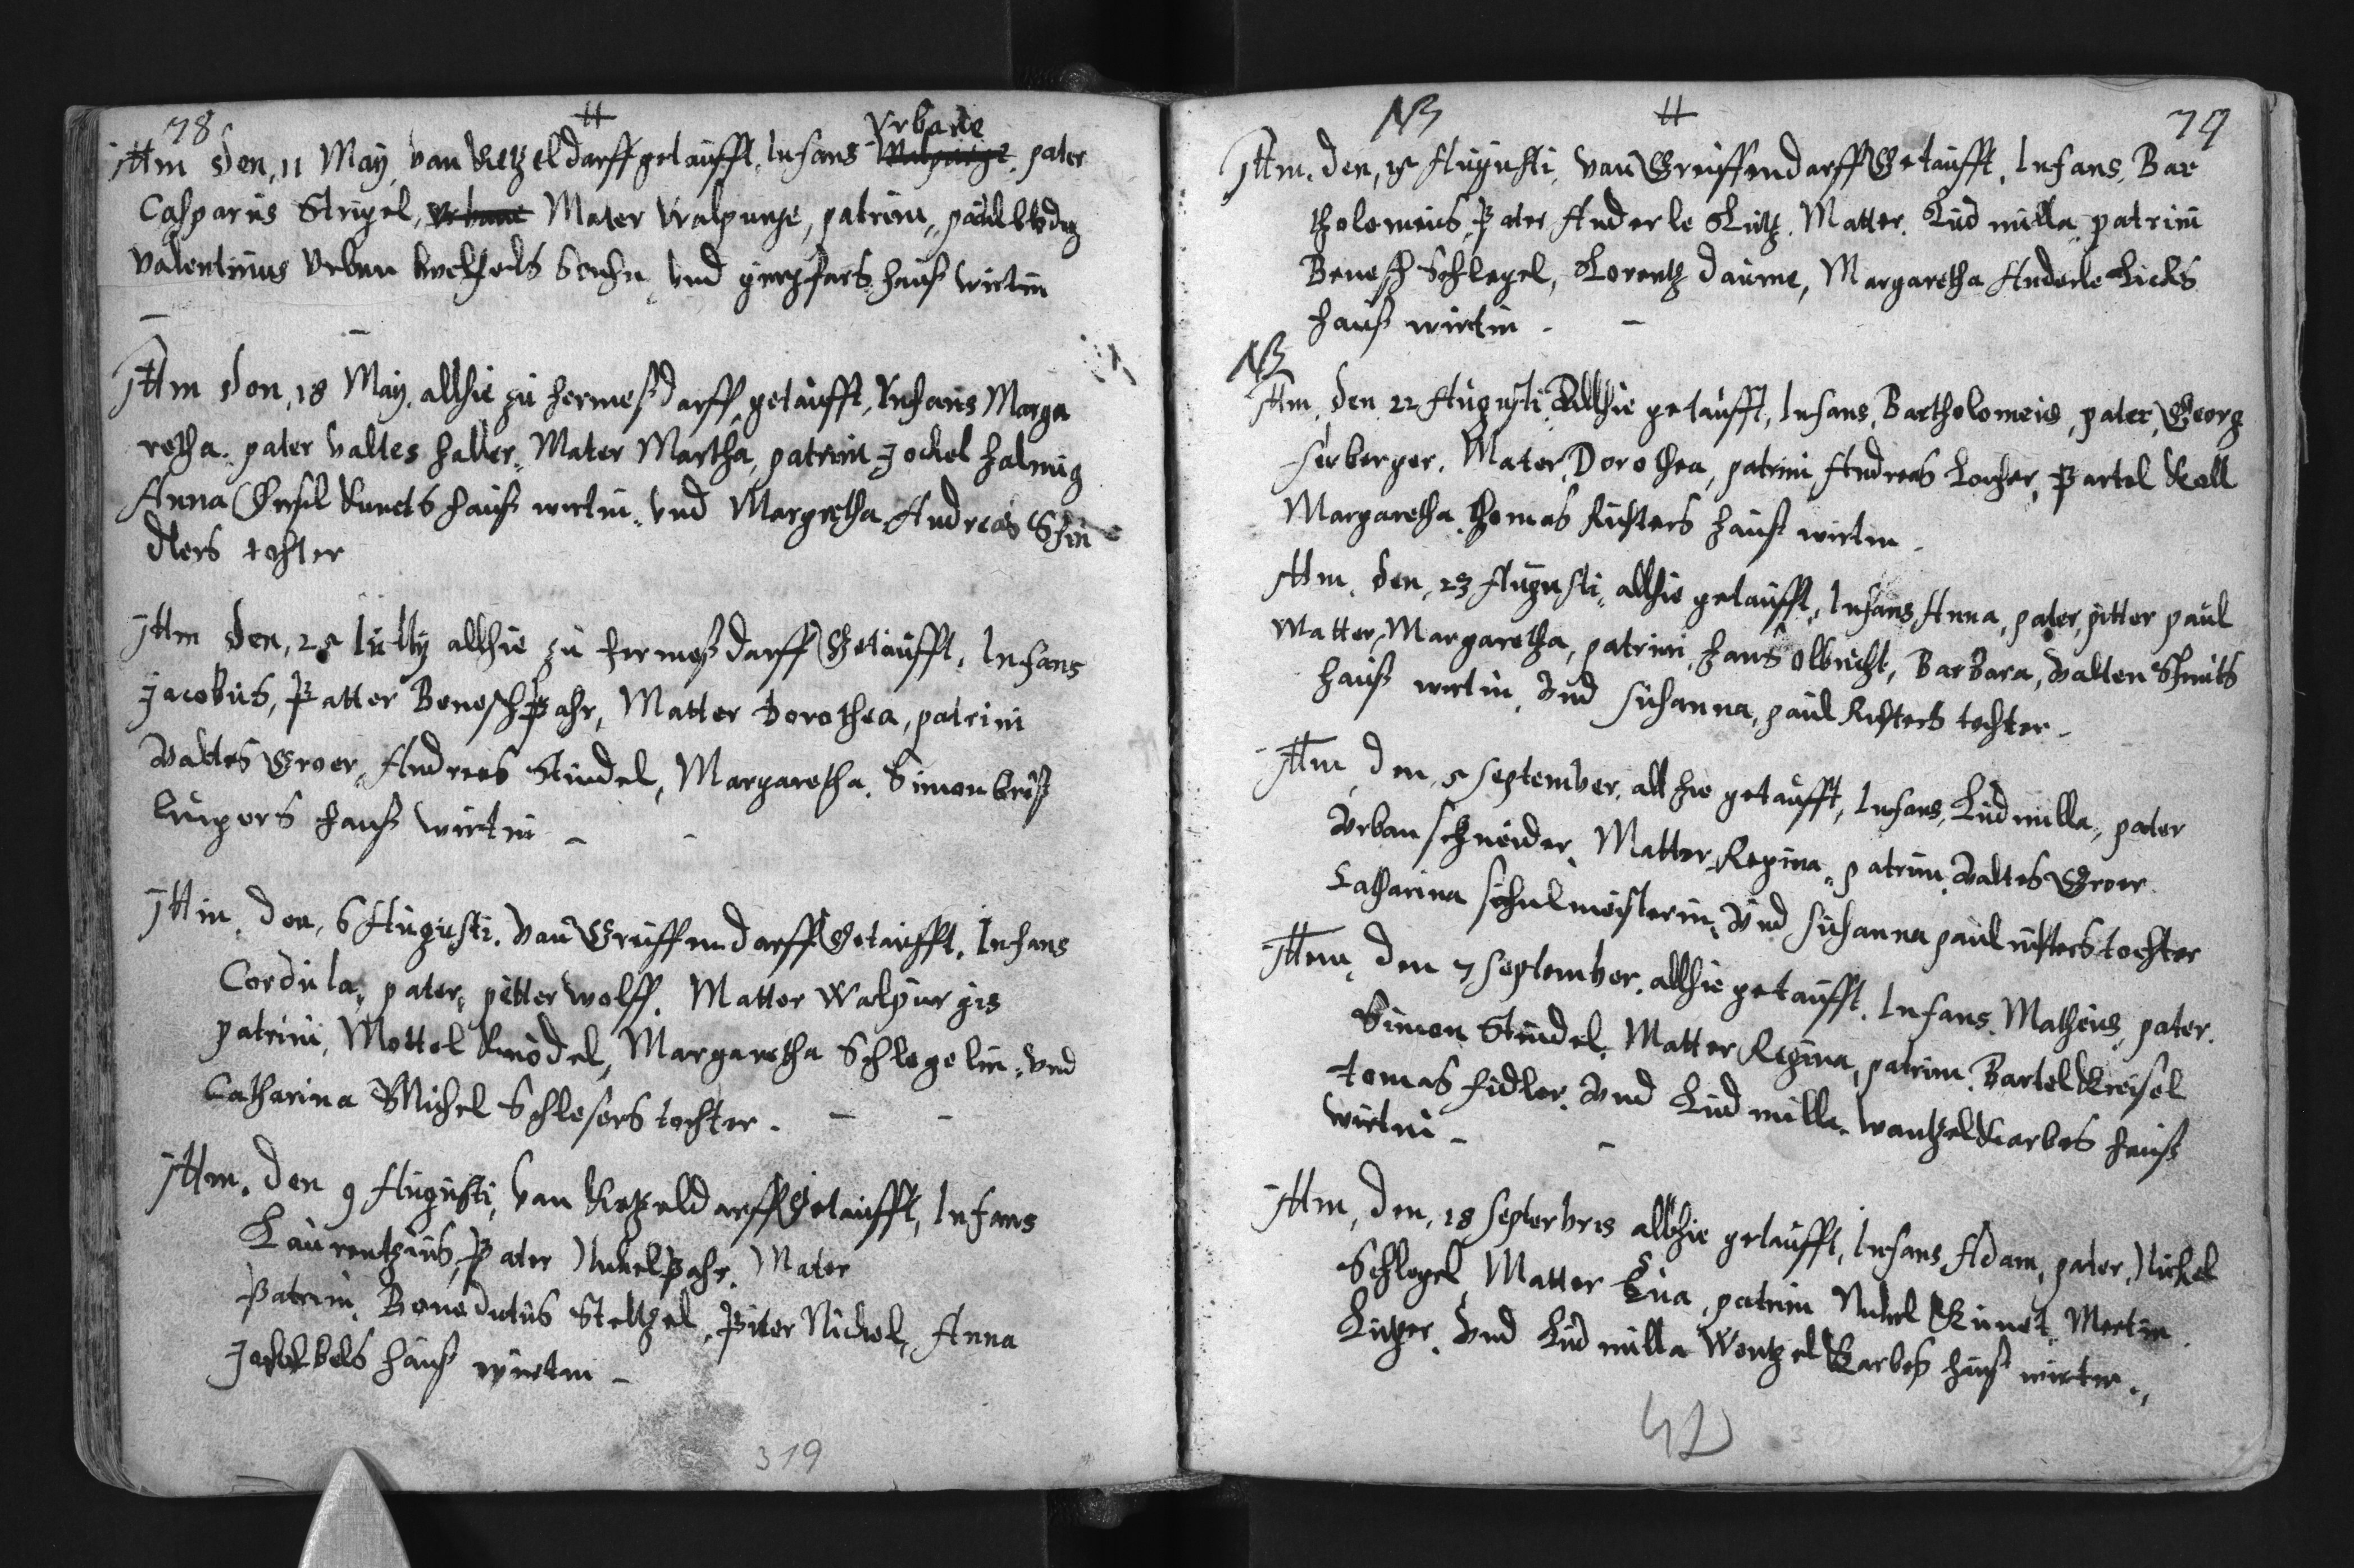 78
Vrbane
Ittm den, 11 May, van Ketzeldarff getaufft, Infans Walpurge. pater
Casparus Strigel, Urbane Mater Walpurge, patrini,, paul
Valentinus Urban Sohn, und haus wirtin
Ittm den, 18 May, allhie zu hermesdarff, getaufft, Infans Marga
retha. pater Valtes haller, Mater Martha, patrini Jockel halmig
Anna Orsel Kunets haus wirtin. und Margretha Andreas Schin
dlers tochter
Ittm den, 25 Iully allhie zu hermesdarff Getaufft, Infans
Jacobus, Patter Benesch Pahr, Matter Dorothea, patrini
Valtes Groer, Andreas Stindel, Margaretha. Simon Criß
Crugers haus wirtin –
Ittm, den, 6 Augusti. van Greiffendarff Getaufft, Infans
Cordula, pater, petter Wolff. Matter Walpurgis
patrini, Mottel Knödel, Margaretha Schlegelin, und
Catharina Michel Schlesers tochter. –
Ittm. den 9 Augusti, van Ketzeldarff Getaufft, Infans
Laurentzius, Pater Nickel Pahr. Mater
Patrini, Benedictus Steltzel, Piter Nickel, Anna
haus wirtin –
319
NB
79
Ittm. den, 15 Augusti, van Greiffendarff Getaufft, Infans, Bar
tholomeus, Pater Anderle Lutz. Matter. Ludmilla patrini
Benesch Schlegel, Lorentz Daume, Margaretha Anderle Licks
haus wirtin. –
NB
Ittm, den 22 Augusti Allhie getaufft, Infans, Bartholomeus, pater, Georg
Surberger. Mater, Dorothea, patrini Andreas Locher, Partel Kall
Margaretha Thomas Richters haus wirtin.
Ittm. den, 23 Augusti, allhie getaufft, Infans Anna, pater, pitter paul
Matter, Margaretha, patrini, hans Olbricht, Barbara, Valten Schmits
haus wirtin, und Susanna, paul Richters tochter –
Ittm, den, 5 September, allhie getaufft, Infans, Ludmilla, pater
Urban Schneider, Matter, Regina, patrini, Valtes Groer
Catharina schulmeisterin, und Susanna paul richters tochter
Ittm, den 7 September, allhie getaufft. Infans, Matheus, pater.
Simon Stindel, Matter Regina, patrini, Bartel Kreisel
Tomas Fidler, und Ludmilla. Wantzel Karbes haus
wirtin –
Ittm, den, 18 Septerbris allhie getaufft, Infans Adam, pater, Nickel
Schlegel, Matter Eua, patrini Nickel Kunet. Mertin
Lutzer. und Ludmilla Wentzel Karbes haus wirtin.,
42